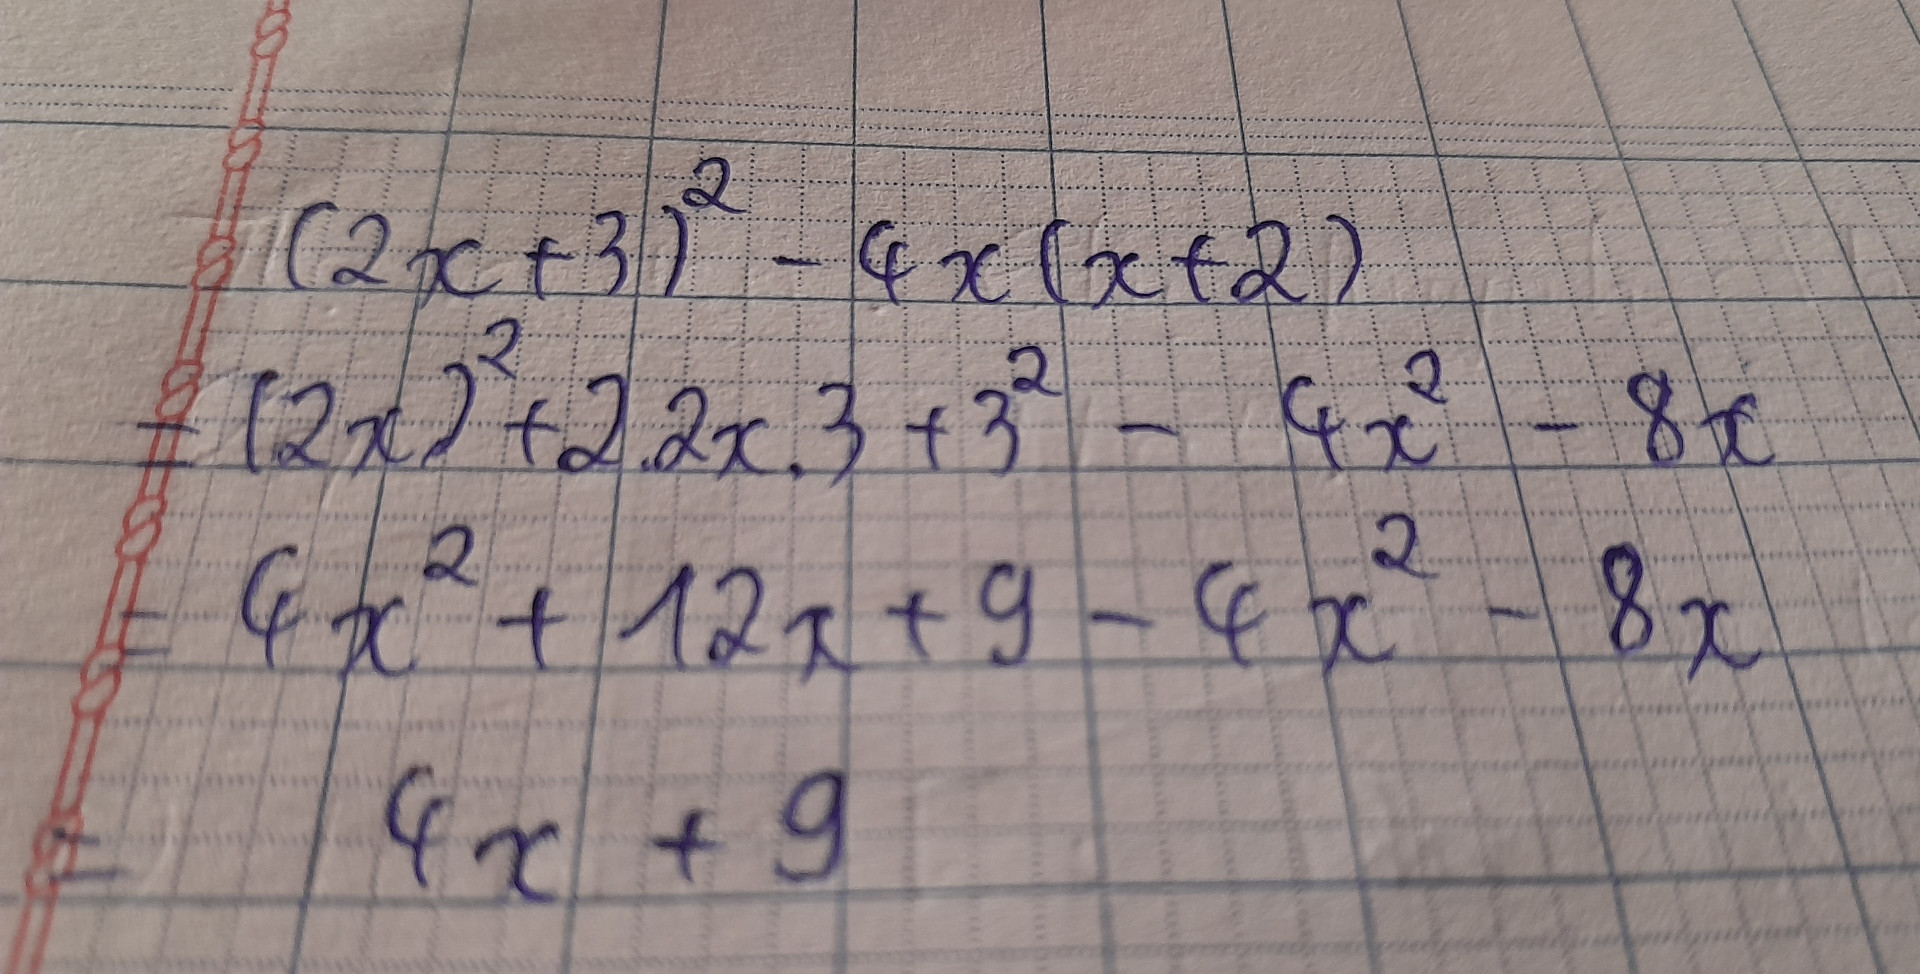 (2x+3)² - 4x(x+2)
= (2x)² + 2.2x.3 + 3² - 4x² - 8x
= 4x² + 12x + 9 - 4x² - 8x
= 4x + 9